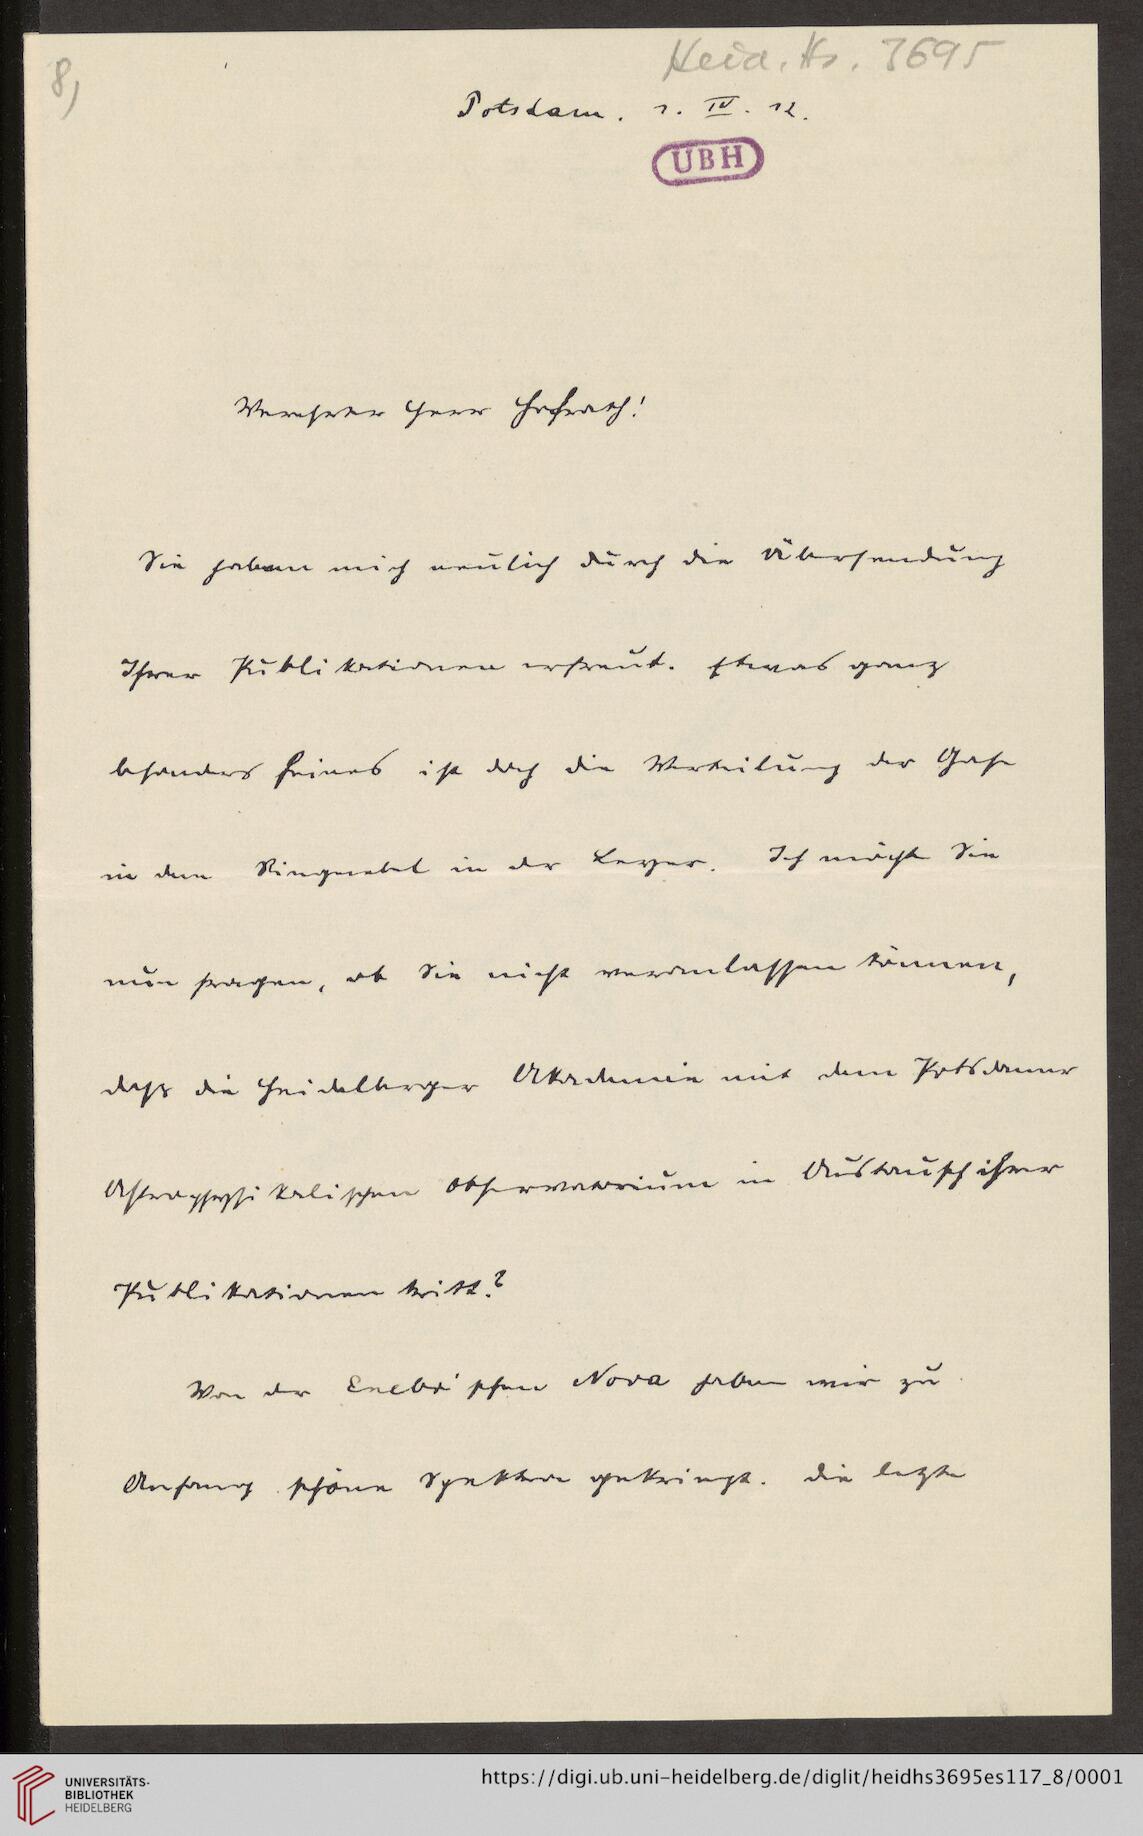 8)
Heid. Hs. 3695
Potsdam. 1. IV. 12.
UBH
Verehrter Herr Hofrath!
Sie haben mich neulich durch die Übersendung
Ihrer Publikationen erfreut. Etwas ganz
besonders feines ist doch die Verteilung der Gase
in dem Ringnebel in der Leyer. Ich möchte Sie
nun fragen, ob Sie nicht veranlassen können,
dass die Heidelberger Akademie mit dem Potsdamer
Astrophysikalischen Observatorium in Austausch ihrer
Publikationen tritt?
Von der Enebo'schen Nova haben wir zu
Anfang schöne Spektra gekriegt. Die letzte
UNIVERSITÄTS-
BIBLIOTHEK
HEIDELBERG
https://digi.ub.uni-heidelberg.de/diglit/heidhs3695es117_8/0001